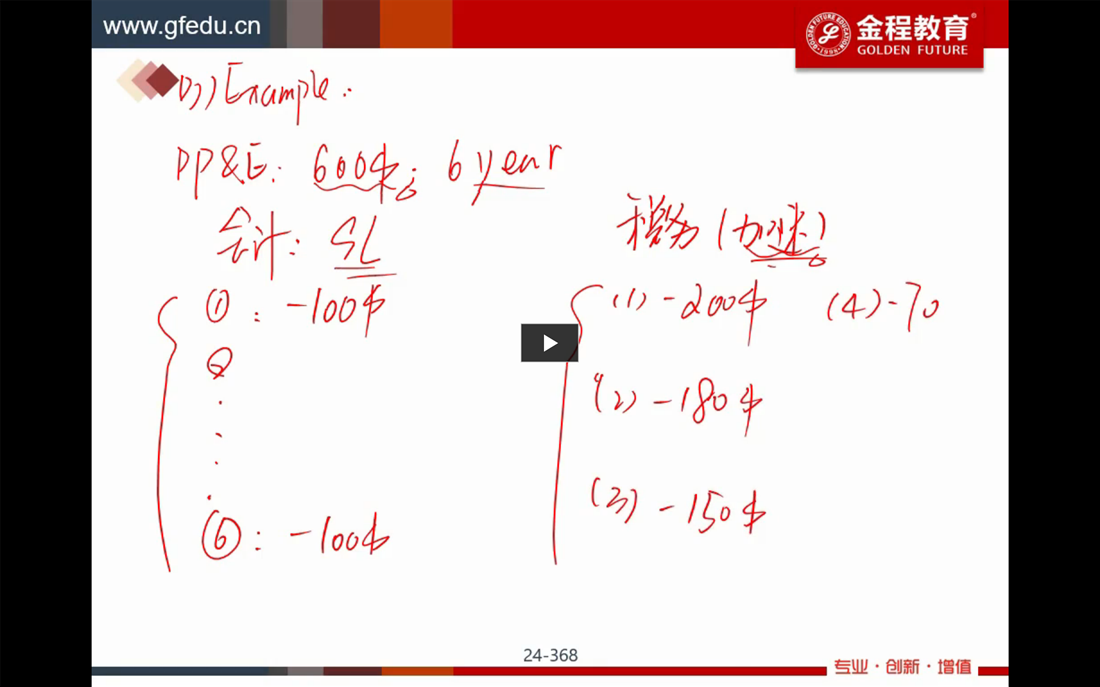 www.gfedu.cn
金程教育®
GOLDEN FUTURE
Example.
PP&E: 600$; 6 year
会计: SL
税务 (加速)
①: -100$
(1) -200$ (4) -70
②
(2) -180$
(3) -150$
⑥: -100$
24-368
专业·创新·增值